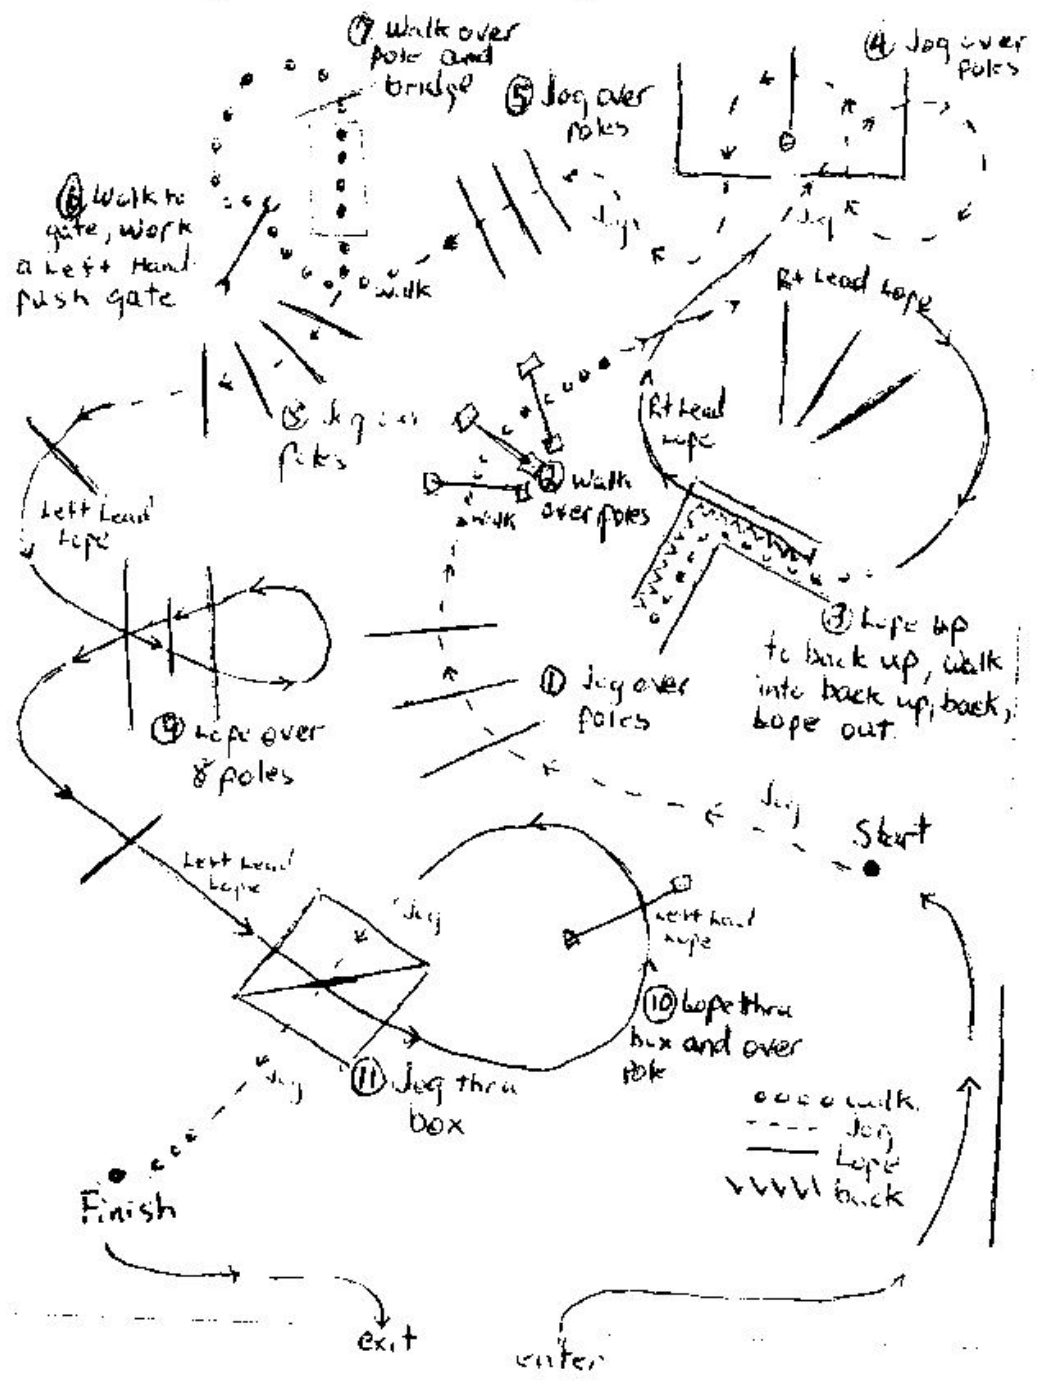 ⑦ Walk over
pole and
bridge
④ Jog over
poles
⑤ Jog over
poles
⑥ Walk to
gate, work
a Left Hand
push gate
Jog
Jog
Walk
Rt Lead Lope
Rt Lead
Lope
⑧ Jog over
poles
② Walk
over poles
Walk
Left Lead
Lope
③ Lope up
to back up, walk
into back up, back,
Lope out.
① Jog over
poles
⑨ Lope over
poles
Jog
Start
Left Lead
Lope
Jog
Left Lead
Lope
⑩ Lope thru
box and over
pole
⑪ Jog thru
box
Jog
walk
Jog
Lope
back
Finish
exit
enter